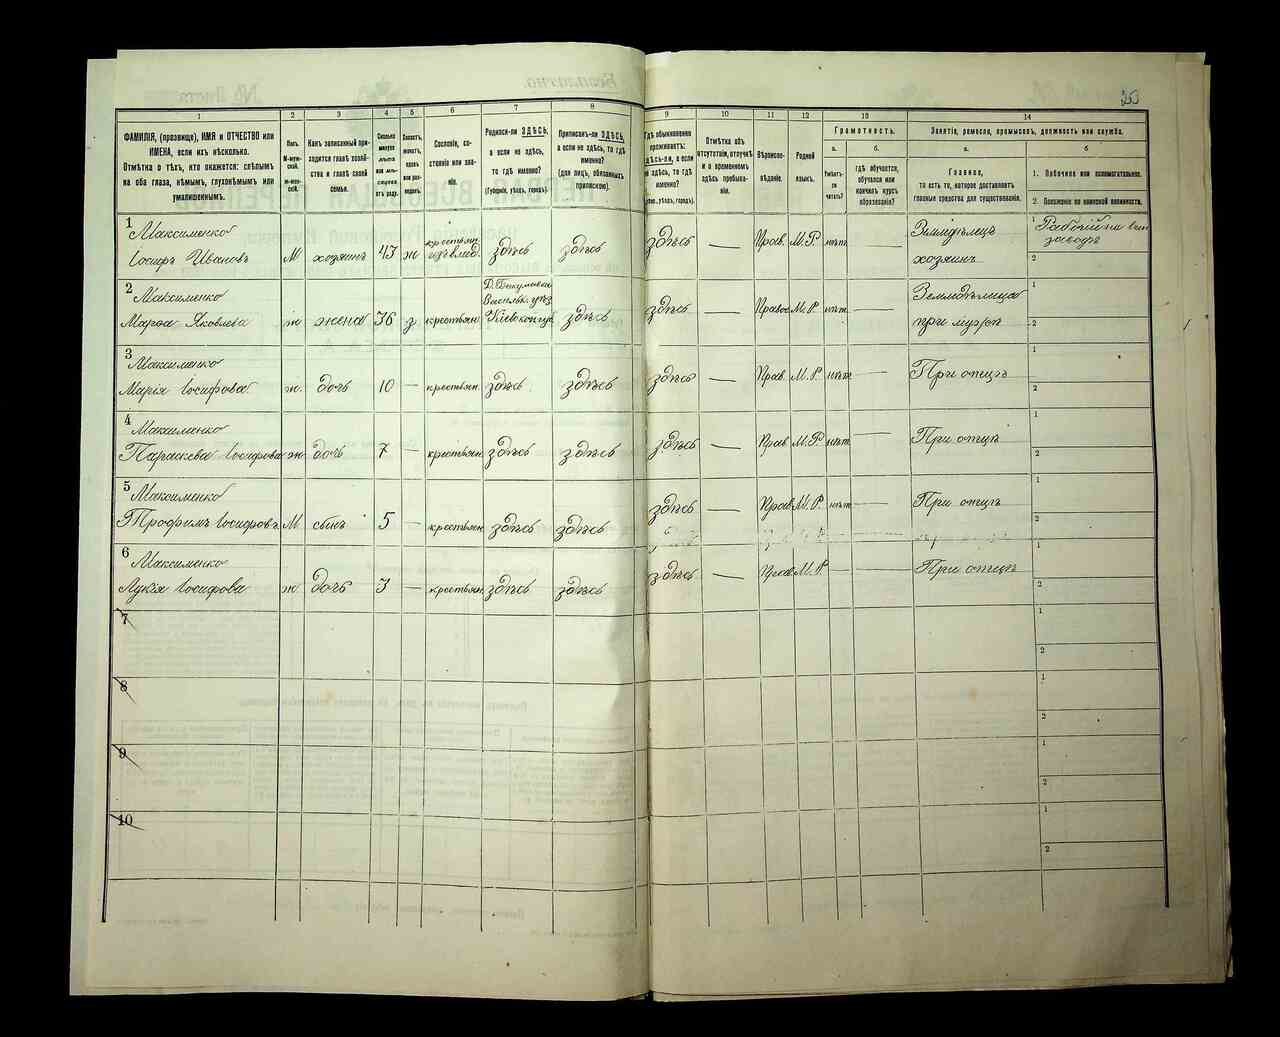 253
1
2
3
4
5
6
7
8
9
10
11
12
13
14
ФАМИЛІЯ, (прозвище), ИМЯ и ОТЧЕСТВО или
ИМЕНА, если ихъ нѣсколько.
Отмѣтка о тѣхъ, кто окажется: слѣпымъ
на оба глаза, нѣмымъ, глухонѣмымъ или
умалишеннымъ.
Полъ.
М-муж-
ской.
ж-жен-
скій.
Какъ записанный при-
ходится главѣ хозяй-
ства и главѣ своей
семьи.
Сколько
минуло
лѣтъ
или мѣ-
сяцевъ
отъ роду.
Холостъ,
женатъ,
вдовъ
или раз-
веденъ.
Сословіе, со-
стояніе или зва-
ніе.
Родился-ли ЗДѢСЬ,
а если не здѣсь,
то гдѣ именно?
(Губернія, уѣздъ, городъ).
Приписанъ-ли ЗДѢСЬ,
а если не здѣсь, то гдѣ
именно?
(для лицъ, обязанныхъ
припискою).
Гдѣ обыкновенно
проживаетъ:
здѣсь-ли, а если
не здѣсь, то гдѣ
именно?
Отмѣтка объ
отсутствіи, отлучкѣ
и о временномъ
здѣсь пребыва-
ніи.
Вѣроиспо-
вѣданіе.
Родной
языкъ.
Грамотность.
а.
б.
Умѣетъ-
ли
читать?
гдѣ обучается,
обучался или
кончилъ курсъ
образованія?
Занятіе, ремесло, промыселъ, должность или служба.
а.
б
Главное,
то есть то, которое доставляетъ
главныя средства для существованія.
1. Побочное или вспомогательное.
2. Положеніе по воинской повинности.
1 Максименко
Іосифъ Ивановъ М хозяинъ 43 ж крестьян. изъ влад. здѣсь здѣсь здѣсь — Прав. М.Р. нѣтъ — Земледѣлецъ хозяинъ 1 Рабочій на
заводѣ
2
2 Максименко
Марѳа Яковлева ж жена 36 з крестьян. Васильк. уѣз. Кіевск. губ. здѣсь здѣсь — Правос. М.Р. нѣтъ — Земледѣлица при мужѣ 1
2
3 Максименко
Марія Іосифова ж. дочь 10 — крестьян. здѣсь здѣсь здѣсь — Прав. М.Р. нѣтъ — При отцѣ 1
2
4 Максименко
Параскева Іосифова ж. дочь 7 — крестьян. здѣсь здѣсь здѣсь — Прав М.Р. нѣт — При отцѣ 1
2
5 Максименко
Трофимъ Іосифовъ М сынъ 5 — крестьян здѣсь здѣсь здѣсь — Прав М.Р. нѣт — При отцѣ 1
2
6 Максименко
Лукія Іосифова ж дочь 3 — крестьян здѣсь здѣсь здѣсь — Прав М.Р — — При отцѣ 1
2
7
1
2
8
1
2
9
1
2
10
1
2